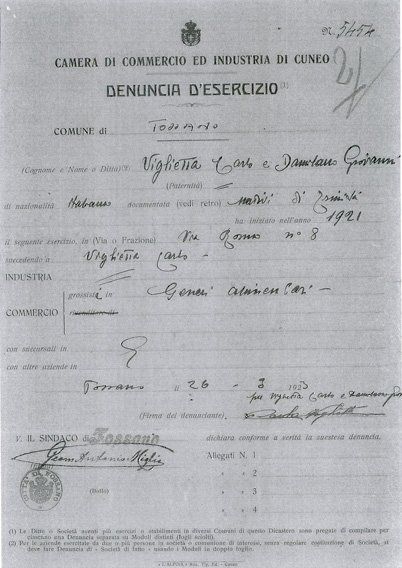 N. 5454
CAMERA DI COMMERCIO ED INDUSTRIA DI CUNEO
2
DENUNCIA D'ESERCIZIO (1)
COMUNE di Fossano
(Cognome e Nome o Ditta) (2) Viglietta Carlo e Giovanni
(Paternità)
di nazionalità Italiana documentata (vedi retro) di
ha iniziato nell'anno 1921
il seguente esercizio, in (Via o Frazione) Via Roma n° 8
succedendo a Viglietta Carlo
INDUSTRIA
grossista in Generi alimentari
COMMERCIO
rivenditore di
con succursali in
con altre aziende in
Fossano li 26 - 3 1923
per Viglietta Carlo e
(Firma del denunciante)
V. IL SINDACO di Fossano dichiara conforme a verità la suestesa denuncia.
Allegati N. 1
» 2
(Bollo) » 3
» 4
(1) Le Ditte o Società aventi più esercizi o stabilimenti in diversi Comuni di questo Distretto sono pregate di compilare per
ciascuno una Denuncia separata su Moduli distinti (fogli sciolti).
(2) Per le aziende esercitate da due o più persone in società o comunione di interessi, senza regolare costituzione di Società, si
deve fare Denuncia di - Società di fatto - usando i Moduli in doppio foglio.
«L'ALPINA» Sta. Tip. Ed. - Cuneo